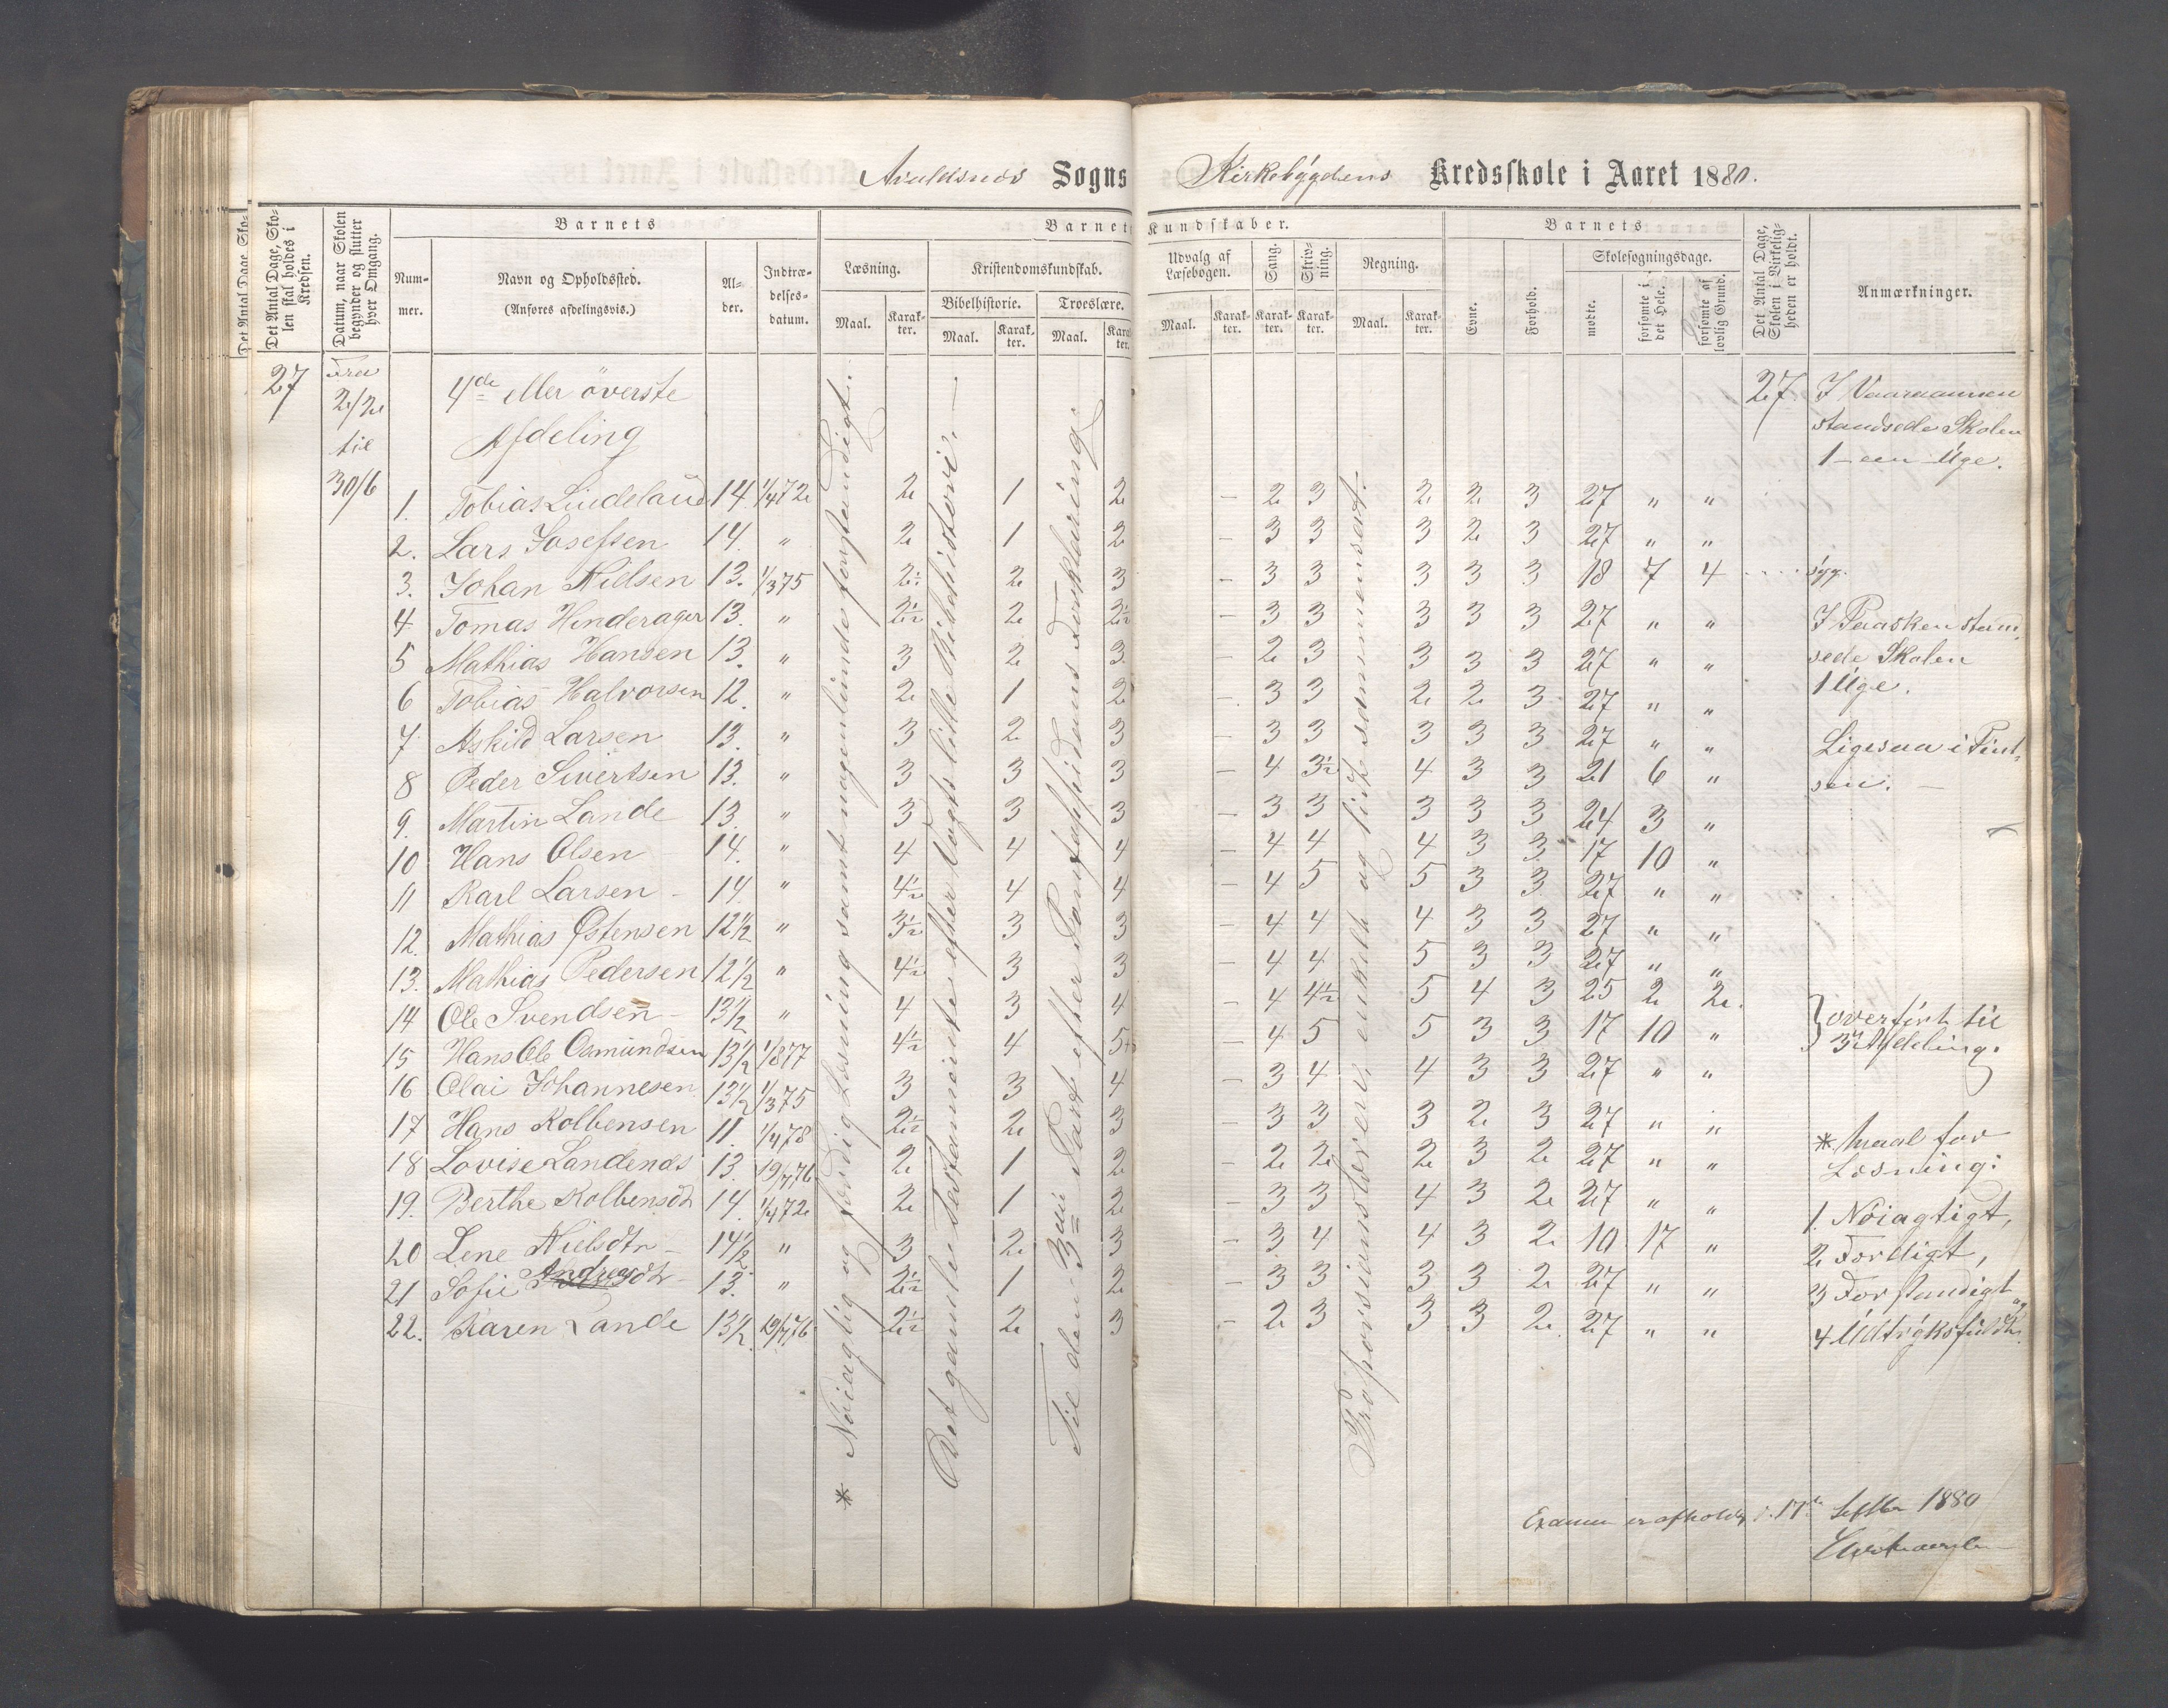 Avaldsnes Sogns Kirkebygdens Kredsskole i Aaret 1880.
Det Antal Dage, Sko-
Det Antal Dage, Sko-
len skal holdes i
Kredsen.
Datum, naar Skolen
begynder og slutter
hver Omgang.
Barnets
Num-
mer.
Navn og Opholdssted.
(Anføres afdelingsvis.)
Al-
der.
Indtræ-
delses-
datum.
Barnets Kundskaber.
Læsning.
Maal. Karak-
ter.
Kristendomskundskab.
Bibelhistorie. Troeslære.
Maal. Karak-
ter. Maal. Karak-
ter.
Udvalg af
Læsebogen.
Maal. Karak-
ter.
Sang.
Karak-
ter.
Skriv-
ning.
Karak-
ter.
Regning.
Maal. Karak-
ter.
Barnets
Evne.
Forhold.
Skolesøgningsdage.
mødte.
forsømte i
det Hele.
forsømte af
lovlig Grund.
Det Antal Dage,
Skolen i Virkelig-
heden er holdt.
Anmærkninger.
27 Fra
2/2
til
30/6
4de eller överste
Afdeling
27
1. Tobias Lindeland 14 1/4 72 2 1 2 - 2 3 2 2 3 27 " "
2. Lars Josefsen 14. " 2 1 2 - 3 3 3 2 3 27 " "
3. Johan Nilsen 13. 1/3 75 2½ 2 3 - 3 3 3 3 3 18 7 4 .... syg.
4 Tomas Hinderager 13. " 2½ 2 2½ - 3 3 3 3 3 27 " "
5 Mathias Hansen 13. " 3 2 3 - 2 3 3 3 3 27 " "
6 Tobias Halvorsen 12. " 2 1 2 - 3 3 2 2 3 27 " "
7 Askild Larsen 13. " 3 2 3 - 3 3 3 3 3 27 " "
8 Peder Sivertsen 13. " 3 3 3 - 4 3½ 4 3 3 21 6 "
9. Martin Lande 13. " 3 3 3 - 3 3 3 3 3 24 3 "
10 Hans Olsen 14. " 4 4 4 - 4 4 4 3 3 17 10 "
11 Karl Larsen - 14. " 4½ 4 4 - 4 5 5 3 3 27 " "
12. Mathias Østensen 12½ " 3½ 3 3 - 4 4 4 3 3 27 " "
13. Mathias Pedersen 12½ " 4½ 3 3 - 4 4 5 3 3 27 " "
14 Ole Svendsen - 13½ " 4 3 4 - 4 4½ 5 4 3 25 2 2.
15 Hans Ole Osmundsen 13½ 1/8 77 4½ 4 5 - 4 5 5 3 3 17 10 "
16 Olai Johannesen 13½ 1/3 75 3 3 4 - 3 4 4 3 3 27 " "
17 Hans Kolbensen 11. 1/4 78 2½ 2 3 - 3 3 3 2 3 27 " "
18 Lovise Landends 13. 19/7 76 2 1 2 - 2 2 2 3 2 27 " "
19. Berthe Kolbensdt 14. 1/4 72 2 1 2 - 3 3 4 3 2 27 " "
20 Lene Nielsdtr - 14½ " 3 2 3 - 3 4 4 3 2 10 17 "
21 Sofie Andreasdtr 13. " 2½ 1 2 - 3 3 3 3 2 27 " "
22. Karen Lande 13½ 19/7 76 2½ 2 3 - 2 3 3 3 2 27 " "
* Nöiagtig og færdig Læsning samt nogenlunde forstandigt.
Det gamle Testamente efter Vogts lille Bibelhistori. -
Til den 3die Part efter Pontoppidans Forklaring.
Proporsionslæren, enkelt og lidt sammensat.
I Vaaraannen
standsede Skolen
1 - een - Uge.
I Paasken stan-
sede Skolen
1 Uge.
Ligesaa i Pint-
sen. -
} overfört til
3die Afdeling.
* Maal for
Læsning:
1. Nöiagtigt,
2 Færdigt,
3 Forstandigt og
4 Udtryksfuldt.
Examen er afholdt d. 17de Septbr 1880